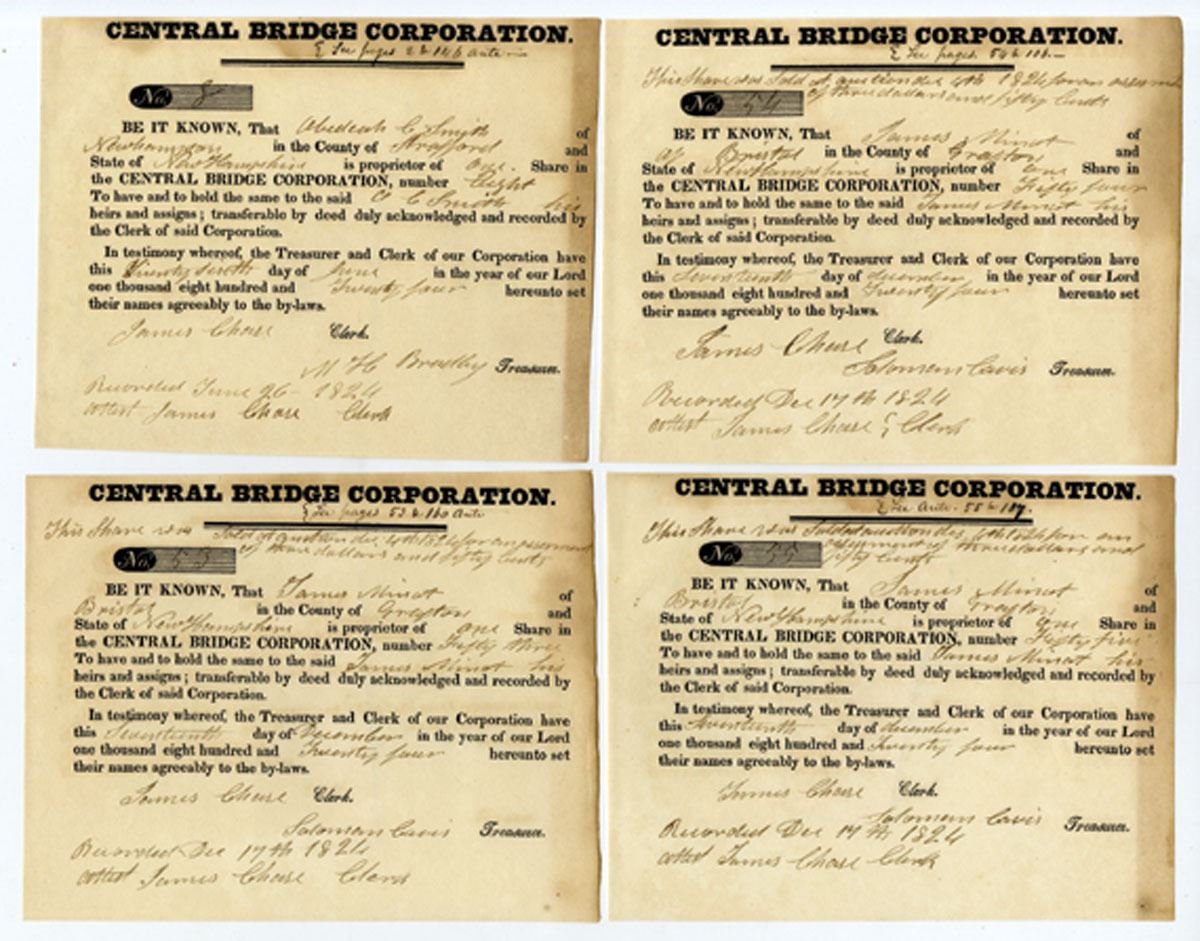 CENTRAL BRIDGE CORPORATION.
See pages 2 & 146 ante
No. 8
BE IT KNOWN, That Obediah C Smith of
Newhampton in the County of Strafford and
State of New Hampshire is proprietor of one Share in
the CENTRAL BRIDGE CORPORATION, number Eight
To have and to hold the same to the said O C Smith his
heirs and assigns; transferable by deed duly acknowledged and recorded by
the Clerk of said Corporation.
In testimony whereof, the Treasurer and Clerk of our Corporation have
this Twenty sixth day of June in the year of our Lord
one thousand eight hundred and Twenty four hereunto set
their names agreeably to the by-laws.
James Chase Clerk.
M H Bradley Treasurer.
Recorded June 26 - 1824
attest James Chase Clerk
CENTRAL BRIDGE CORPORATION.
See pages 54 & 106.
This Share was Sold at auction dec 4th 1824 for an
of three dollars and fifty Cents
No. 54
BE IT KNOWN, That James Minot of
of Bristol in the County of Grafton and
State of New Hampshire is proprietor of one Share in
the CENTRAL BRIDGE CORPORATION, number Fifty four
To have and to hold the same to the said James Minot his
heirs and assigns; transferable by deed duly acknowledged and recorded by
the Clerk of said Corporation.
In testimony whereof, the Treasurer and Clerk of our Corporation have
this Seventeenth day of december in the year of our Lord
one thousand eight hundred and Twenty four hereunto set
their names agreeably to the by-laws.
James Chase Clerk.
Solomon Cavis Treasurer.
Recorded Dec 17th 1824
attest James Chase Clerk
CENTRAL BRIDGE CORPORATION.
See pages 53 & 160 Ante
This Share was Sold at auction dec 4th 1824 for an assessment
of three dollars and fifty Cents
No. 53
BE IT KNOWN, That James Minot of
Bristol in the County of Grafton and
State of New Hampshire is proprietor of one Share in
the CENTRAL BRIDGE CORPORATION, number Fifty three
To have and to hold the same to the said James Minot his
heirs and assigns; transferable by deed duly acknowledged and recorded by
the Clerk of said Corporation.
In testimony whereof, the Treasurer and Clerk of our Corporation have
this Seventeenth day of December in the year of our Lord
one thousand eight hundred and Twenty four hereunto set
their names agreeably to the by-laws.
James Chase Clerk.
Solomon Cavis Treasurer.
Recorded Dec 17th 1824
attest James Chase Clerk
CENTRAL BRIDGE CORPORATION.
See Ante. 55 & 107.
This Share was Sold at auction dec 4th 1824 for an
assessment of three dollars and
fifty Cents
No. 55
BE IT KNOWN, That James Minot of
Bristol in the County of Grafton and
State of New Hampshire is proprietor of one Share in
the CENTRAL BRIDGE CORPORATION, number Fifty five
To have and to hold the same to the said James Minot his
heirs and assigns; transferable by deed duly acknowledged and recorded by
the Clerk of said Corporation.
In testimony whereof, the Treasurer and Clerk of our Corporation have
this Seventeenth day of december in the year of our Lord
one thousand eight hundred and Twenty four hereunto set
their names agreeably to the by-laws.
James Chase Clerk.
Solomon Cavis Treasurer.
Recorded Dec 17th 1824
attest James Chase Clerk